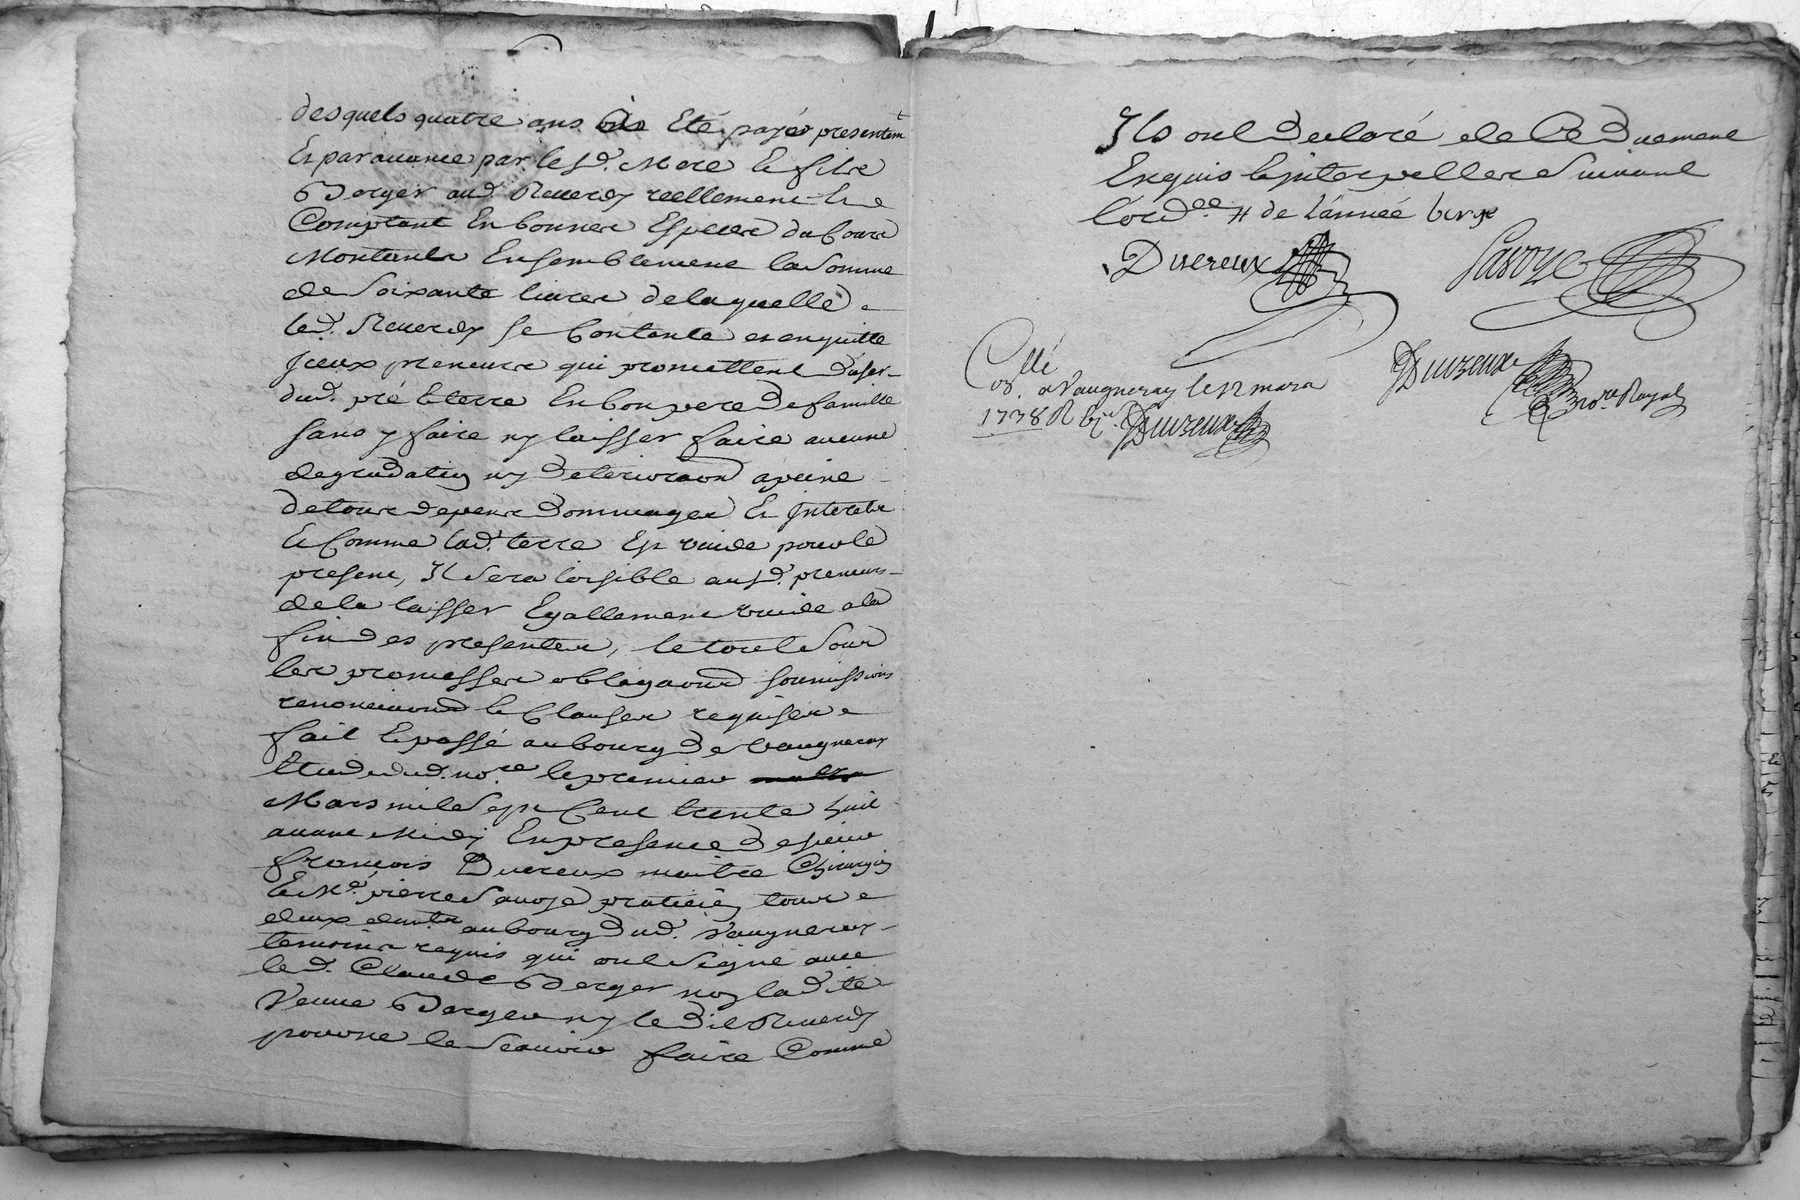 desquels quatre ans Été payé presentem.t
Et par avance par les d. Mere Et filz
Berger aud. Reverdy réellement Et
Comptant En bonnes Especes du Cours
Montants Ensemblement la Somme
de Soixante livres de laquelle
led. Reverdy se Contente et en quitte
Iceux preneurs qui promettent d'user
dud. pré Et terre En bon pere de famille
sans y faire ny laisser faire aucune
degradation ny deterioraon a peine
de tous depens dommages Et Interets
Et Comme lad. terre Est vuide pour le
present, Il sera loisible ausd. preneurs
de la laisser Egallement vuide a la
fin des presentes, le tout Sous
les promesses obligaons soumissions
renonciaons Et Clauses requises
fait Et passé au bourg de Vaugneray
Etude dud. no.re le premier
Mars mil Sept Cent trente huit
avant Midy En presence de sieur
françois Duereux maitre Chirurgien
Et M.e pierre Savoye praticien tous
deux dem.ts au bourg dud. Vaugneray
temoins requis qui ont Signé avec
led. Claude Berger non ladite
Veuve Berger ny ledit Reverdy
pour ne le Scavoir faire Comme
Ils ont declaré de Ce Duement
Enquis Et interpellés Suivant
l'ord.ce de l'année
Duereux Savoye
Collé Duvzeux no.re Royal
a Vaugneray le 12 mars
1738 R Duvzeux